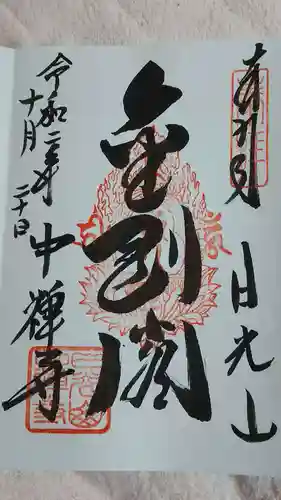 奉拝
日光山
金剛
令和二年
十月二十日
中禪寺